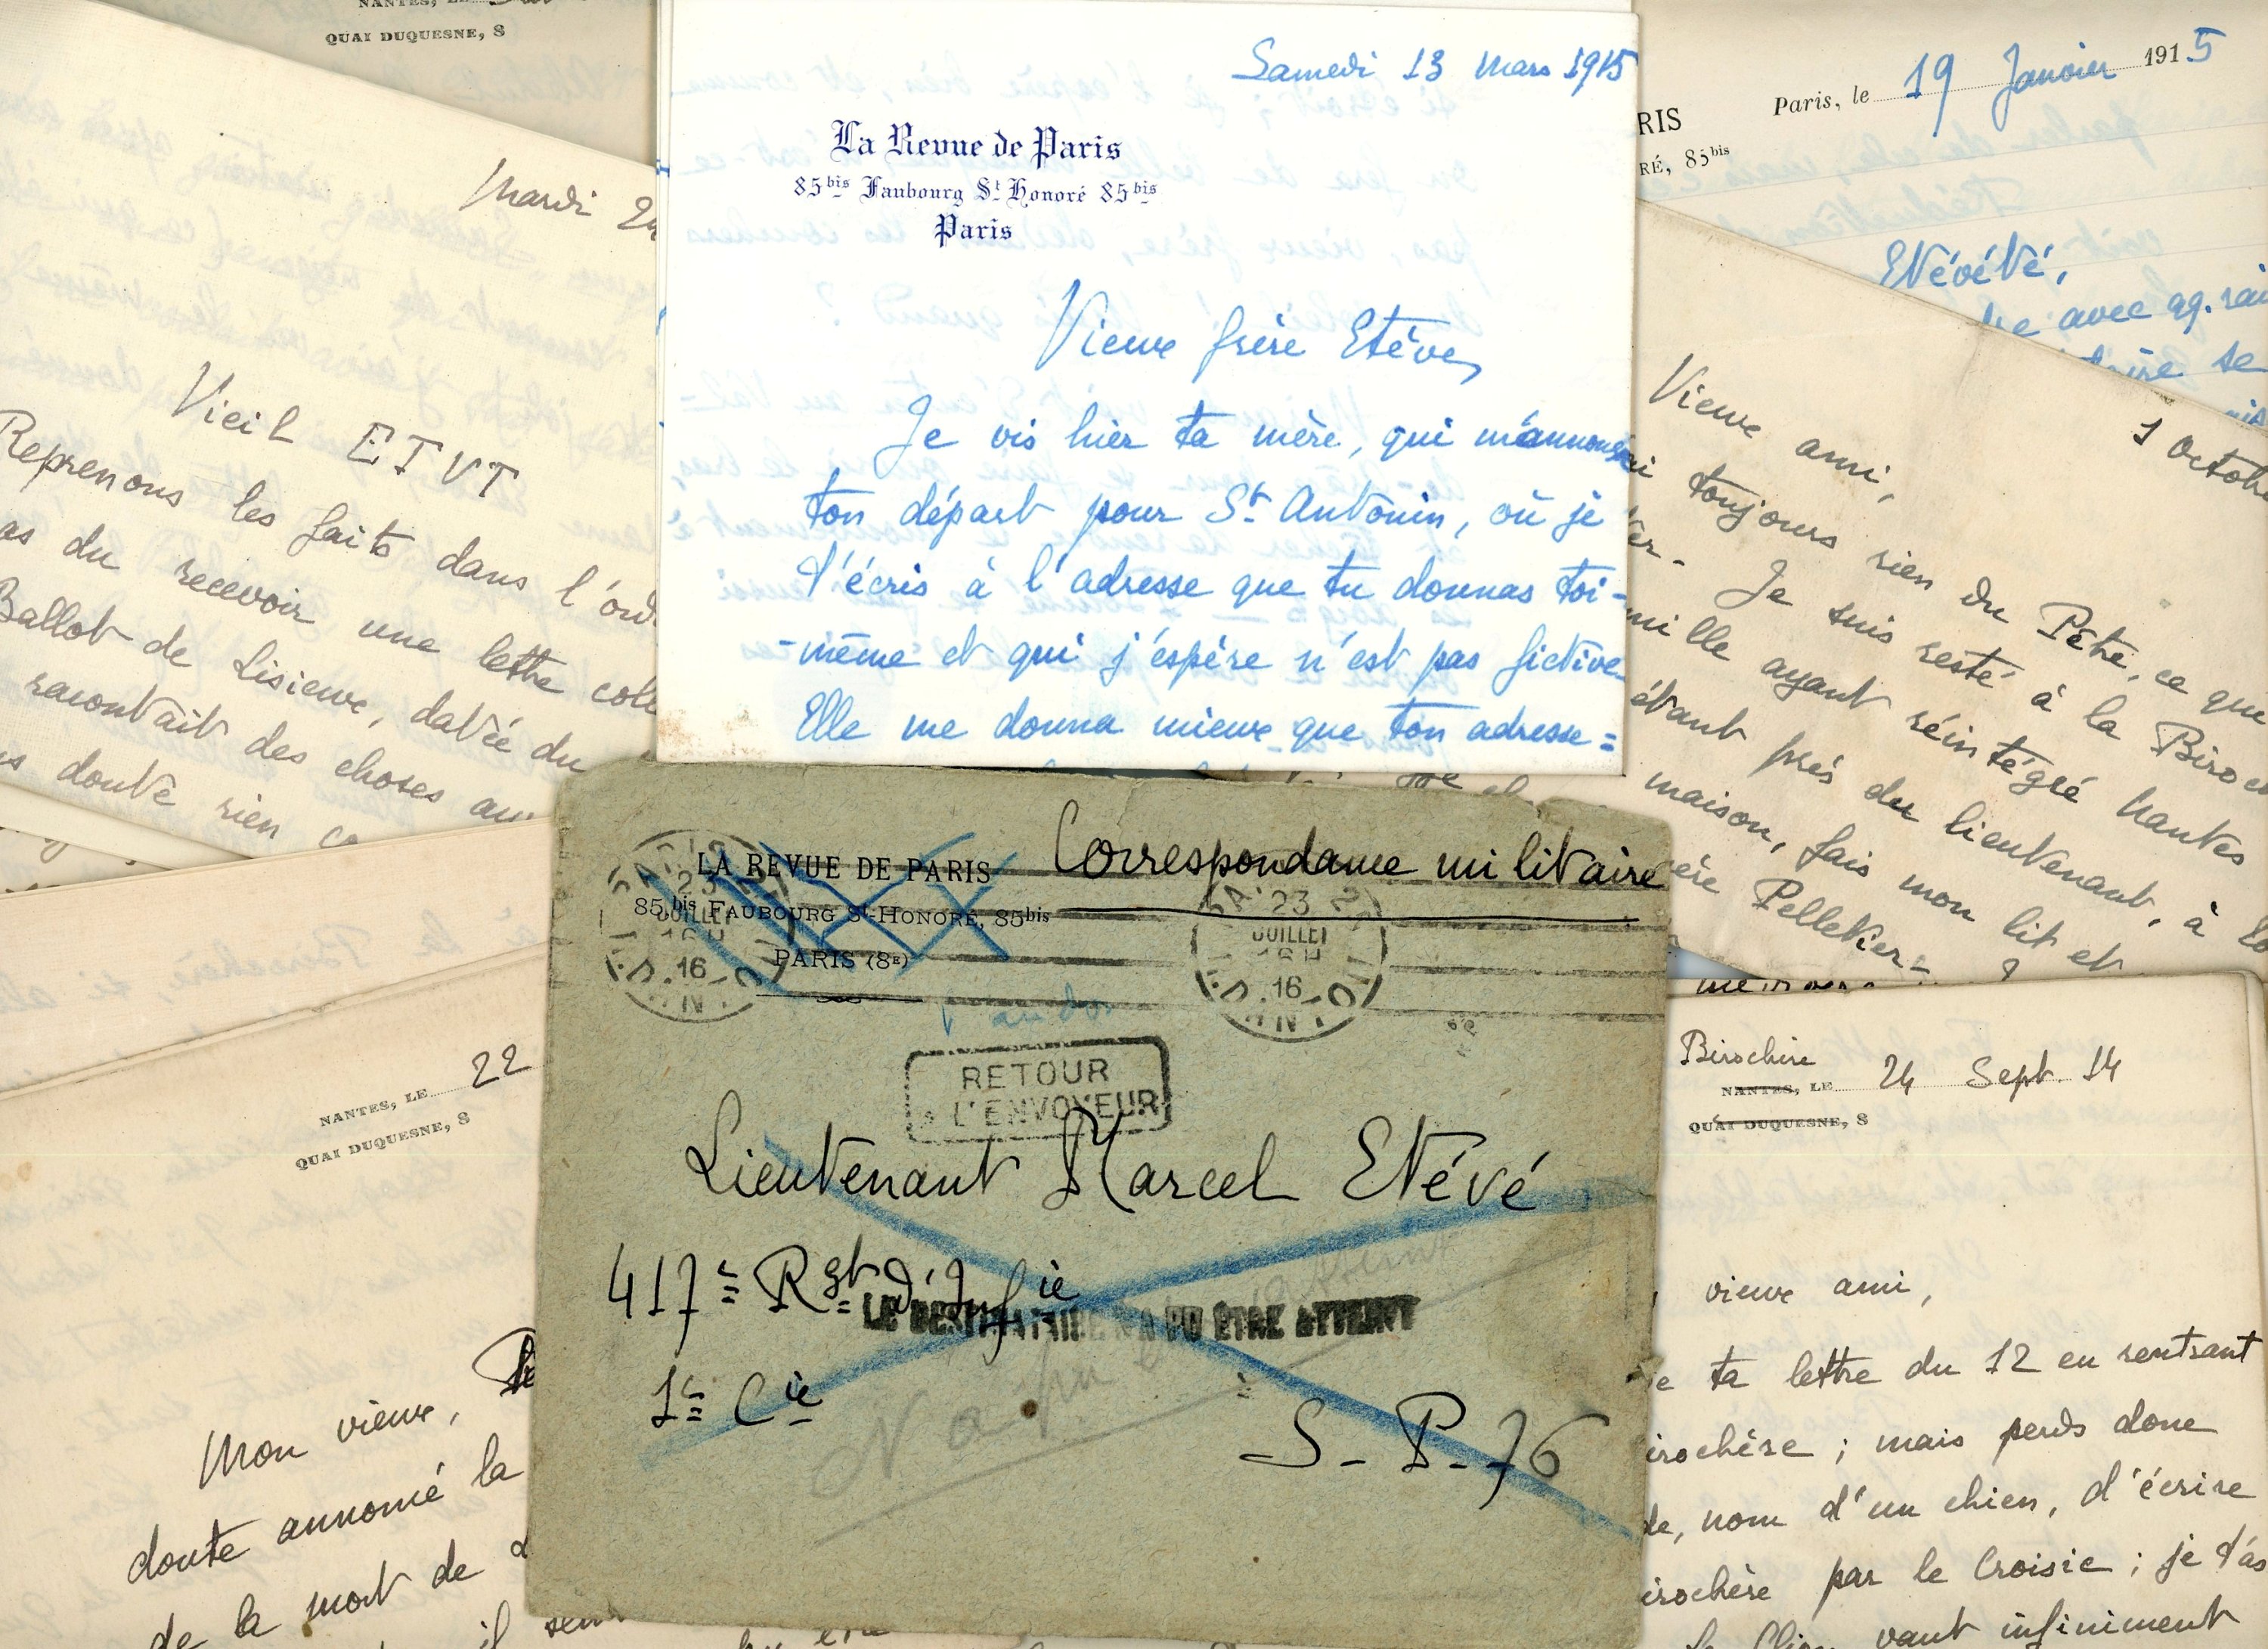 NANTES, LE
QUAI DUQUESNE, 8
Mardi 24
Vieil ETVT
Reprenons les faits dans l'ord
as du recevoir une lettre coll
Ballot de Lisieux, datée du
racontait des choses
doute rien
Samedi 13 Mars 1915
La Revue de Paris
85bis Faubourg St Honoré 85bis
Paris
Vieux frère Etévé,
Je vis hier ta mère, qui m'annonça
ton départ pour St Antonin, où je
t'écris à l'adresse que tu donnas toi-
-même et qui j'espère n'est pas fictive.
Elle me donna mieux que ton adresse=
RIS
RÉ, 85bis
Paris, le 19 Janvier 1915
Etévété,
avec qq. rai
se
1 Octob
Vieux ami,
ai toujours rien du Pète, ce que
er. Je suis resté à la Biroc
mille ayant réintégré Nantes
étant près du lieutenant, à
maison, fais mon lit et
ère Pelletier-
LA REVUE DE PARIS
85bis FAUBOURG St-HONORÉ, 85bis
PARIS (8E)
Correspondance militaire
23
JUILLET
16
23
JUILLET
16
au dos
RETOUR
A L'ENVOYEUR
Lieutenant Marcel Etévé
417e Rgt d'Infie
LE DESTINATAIRE N'A PU ETRE ATTEINT
1e Cie
N'a pu
S. P. 76
NANTES, LE 22
QUAI DUQUESNE, 8
Mon vieux,
doute annoncé la
de la mort de
il
Birochère
NANTES, LE 24 Sept 14
QUAI DUQUESNE, 8
vieux ami,
ta lettre du 12 en rentrant
irochère ; mais perds donc
de, nom d'un chien, d'écrire
irochère par le Croisic ; je t'as
vaut infiniment